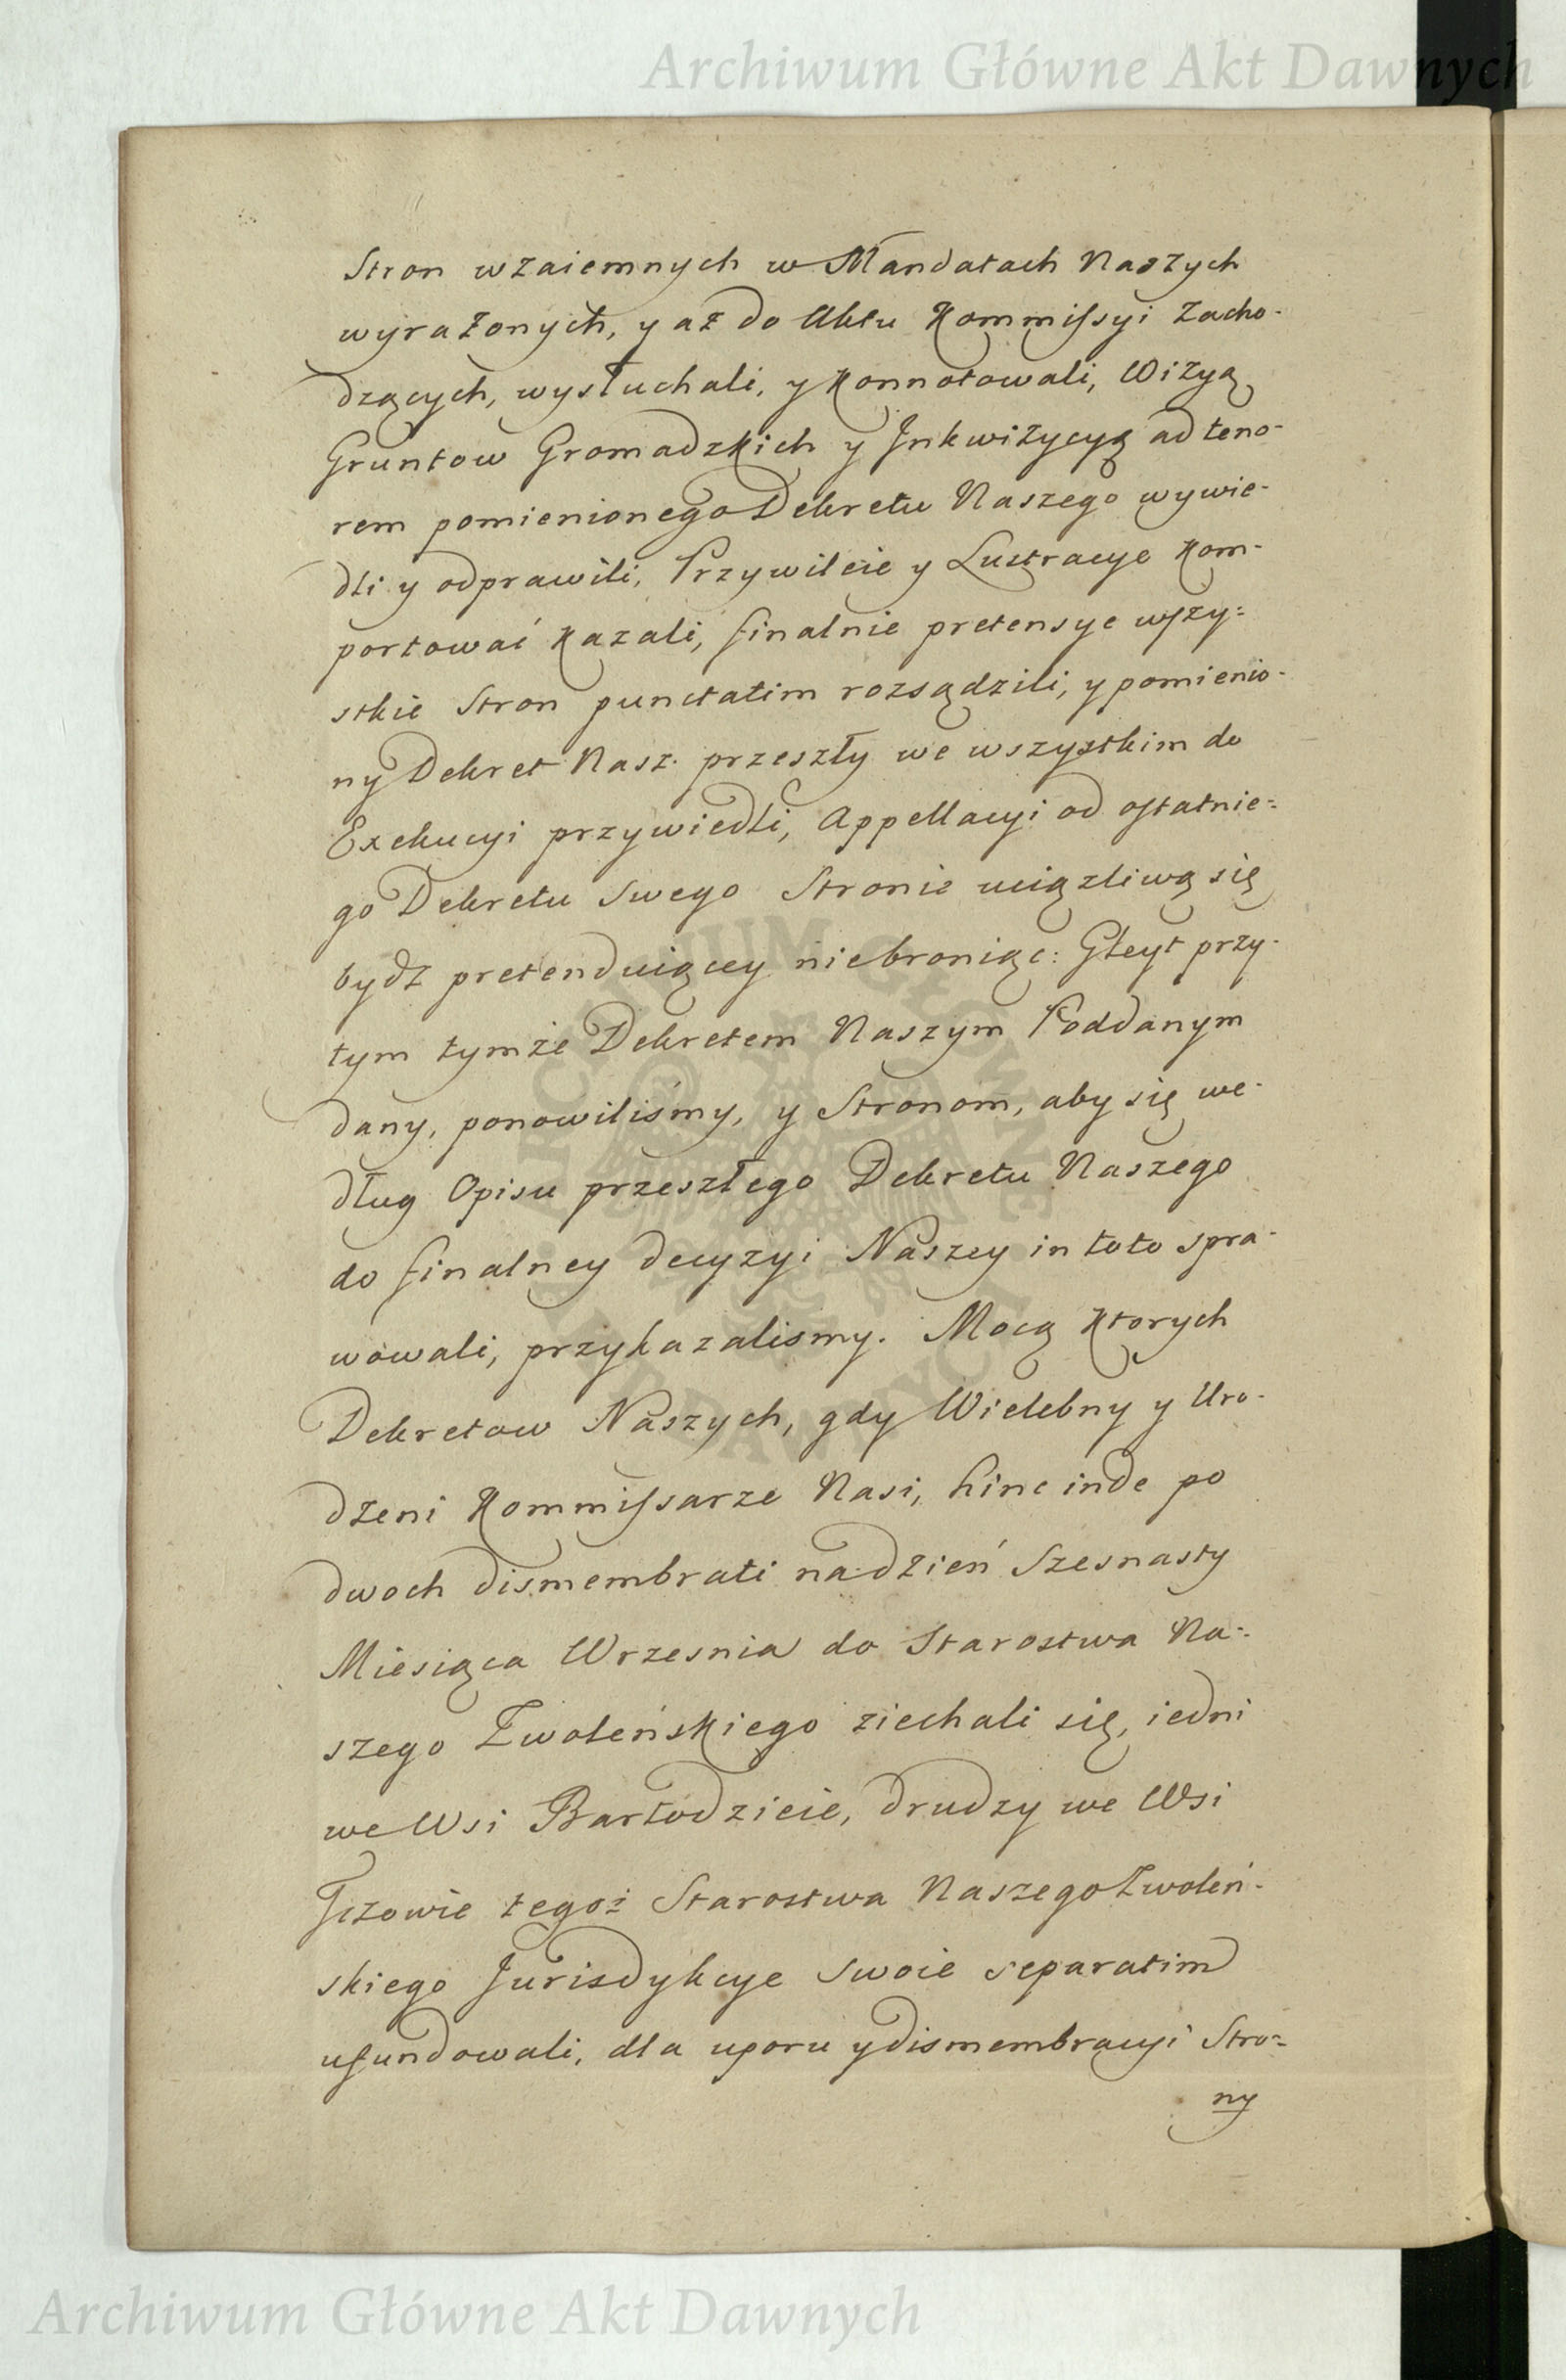 Archiwum Główne Akt Dawnych
Stron wzaiemnych w Mandatach Naszych
wyrażonych, y aż do Aktu Kommissyi zacho-
dzących, wysłuchali, y konnotowali, Wizyą
Gruntow Gromadzkich y Inkwizycyą ad teno-
rem pomienionego Dekretu Naszego wywie-
dli y odprawili, Przywileie y Lustracye kom-
portować kazali, finalnie pretensye wszy-
stkie Stron punctatim rozsądzili, y pomienio-
ny Dekret Nasz przeszły we wszystkim do
Exekucyi przywiedli, Appellacyi od ostatnie-
go Dekretu swego Stronie uciązliwą się
bydź pretenduiącey niebroniąc: Gleyt przy-
tym tymże Dekretem Naszym Poddanym
dany, ponowiliśmy, y Stronom, aby się we-
dług Opisu przeszłego Dekretu Naszego
do finalney decyzyi Naszey in toto spra-
wowali, przykazalismy. Mocą ktorych
Dekretow Naszych, gdy Wielebny y Uro-
dzeni Kommissarze Nasi, hinc inde po
dwoch dismembrati na dzień Szesnasty
Miesiąca Wrzesnia do Starostwa Na-
szego Zwoleńskiego ziechali się, iedni
we Wsi Bartodzieie, drudzy we Wsi
Tczowie tegoż Starostwa Naszego Zwoleń-
skiego Jurisdykcye swoie separatim
ufundowali, dla uporu y dismembracyi Stro-
ny
ARCHIWUM GŁÓWNE AKT DAWNYCH
Archiwum Główne Akt Dawnych